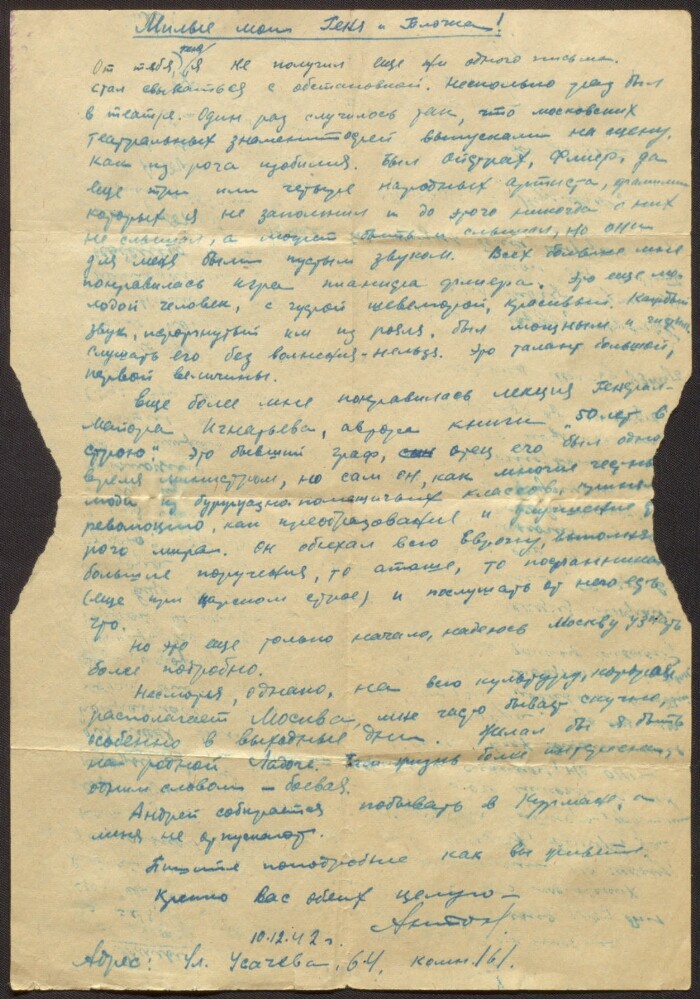 Милые мои Геня и Блочка!
От тебя, Геня, я не получил еще ни одного письма.
стал свыкаться с обстановкой. Несколько раз был
в театре. Один раз случилось так, что московских
театральных знаменитостей выпускали на сцену,
как из рога изобилия. Был Ойстрах, Флиер, да
еще три или четыре народных артиста, фамилии
которых я не запомнил и до этого никогда с них
не слышал, а может быть и слышал, но они
для меня были пустым звуком. Всех больше мне
понравилась игра пианиста Флиера. Это еще мо-
лодой человек, с густой шевелюрой, красивый. Каждый
звук, исторгнутый им из рояля, был мощным и
слушать его без волнения - нельзя. Это талант большой,
первой величины.
Еще более мне понравилась лекция Генерал-
майора Игнатьева, автора книги "50 лет в
строю". Это бывший граф, отец его был одно
время министром, но сам он, как многие
люди из буржуазно-помещичьих классов,
революцию, как преобразование и
рого мира. Он объехал всю Европу, выполняя
большие поручения, то атташе, то посланника
(еще при царском строе) и послушать от него есть
что.
Но это еще только начало, надеюсь Москву узнать
более подробно.
Несмотря, однако, на всю культуру, которой
располагает Москва, мне часто бывает скучно,
особенно в выходные дни. Желал бы я быть
на родной Ладоге. Там жизнь более интересная,
одним словом - боевая.
Андрей собирается побывать в , а
меня не отпускают.
Пишите поподробнее как вы живете.
Крепко Вас обеих целую -
Антон
10.12.42 г.
Адрес: Ул. Усачева, 64, комн. 161.